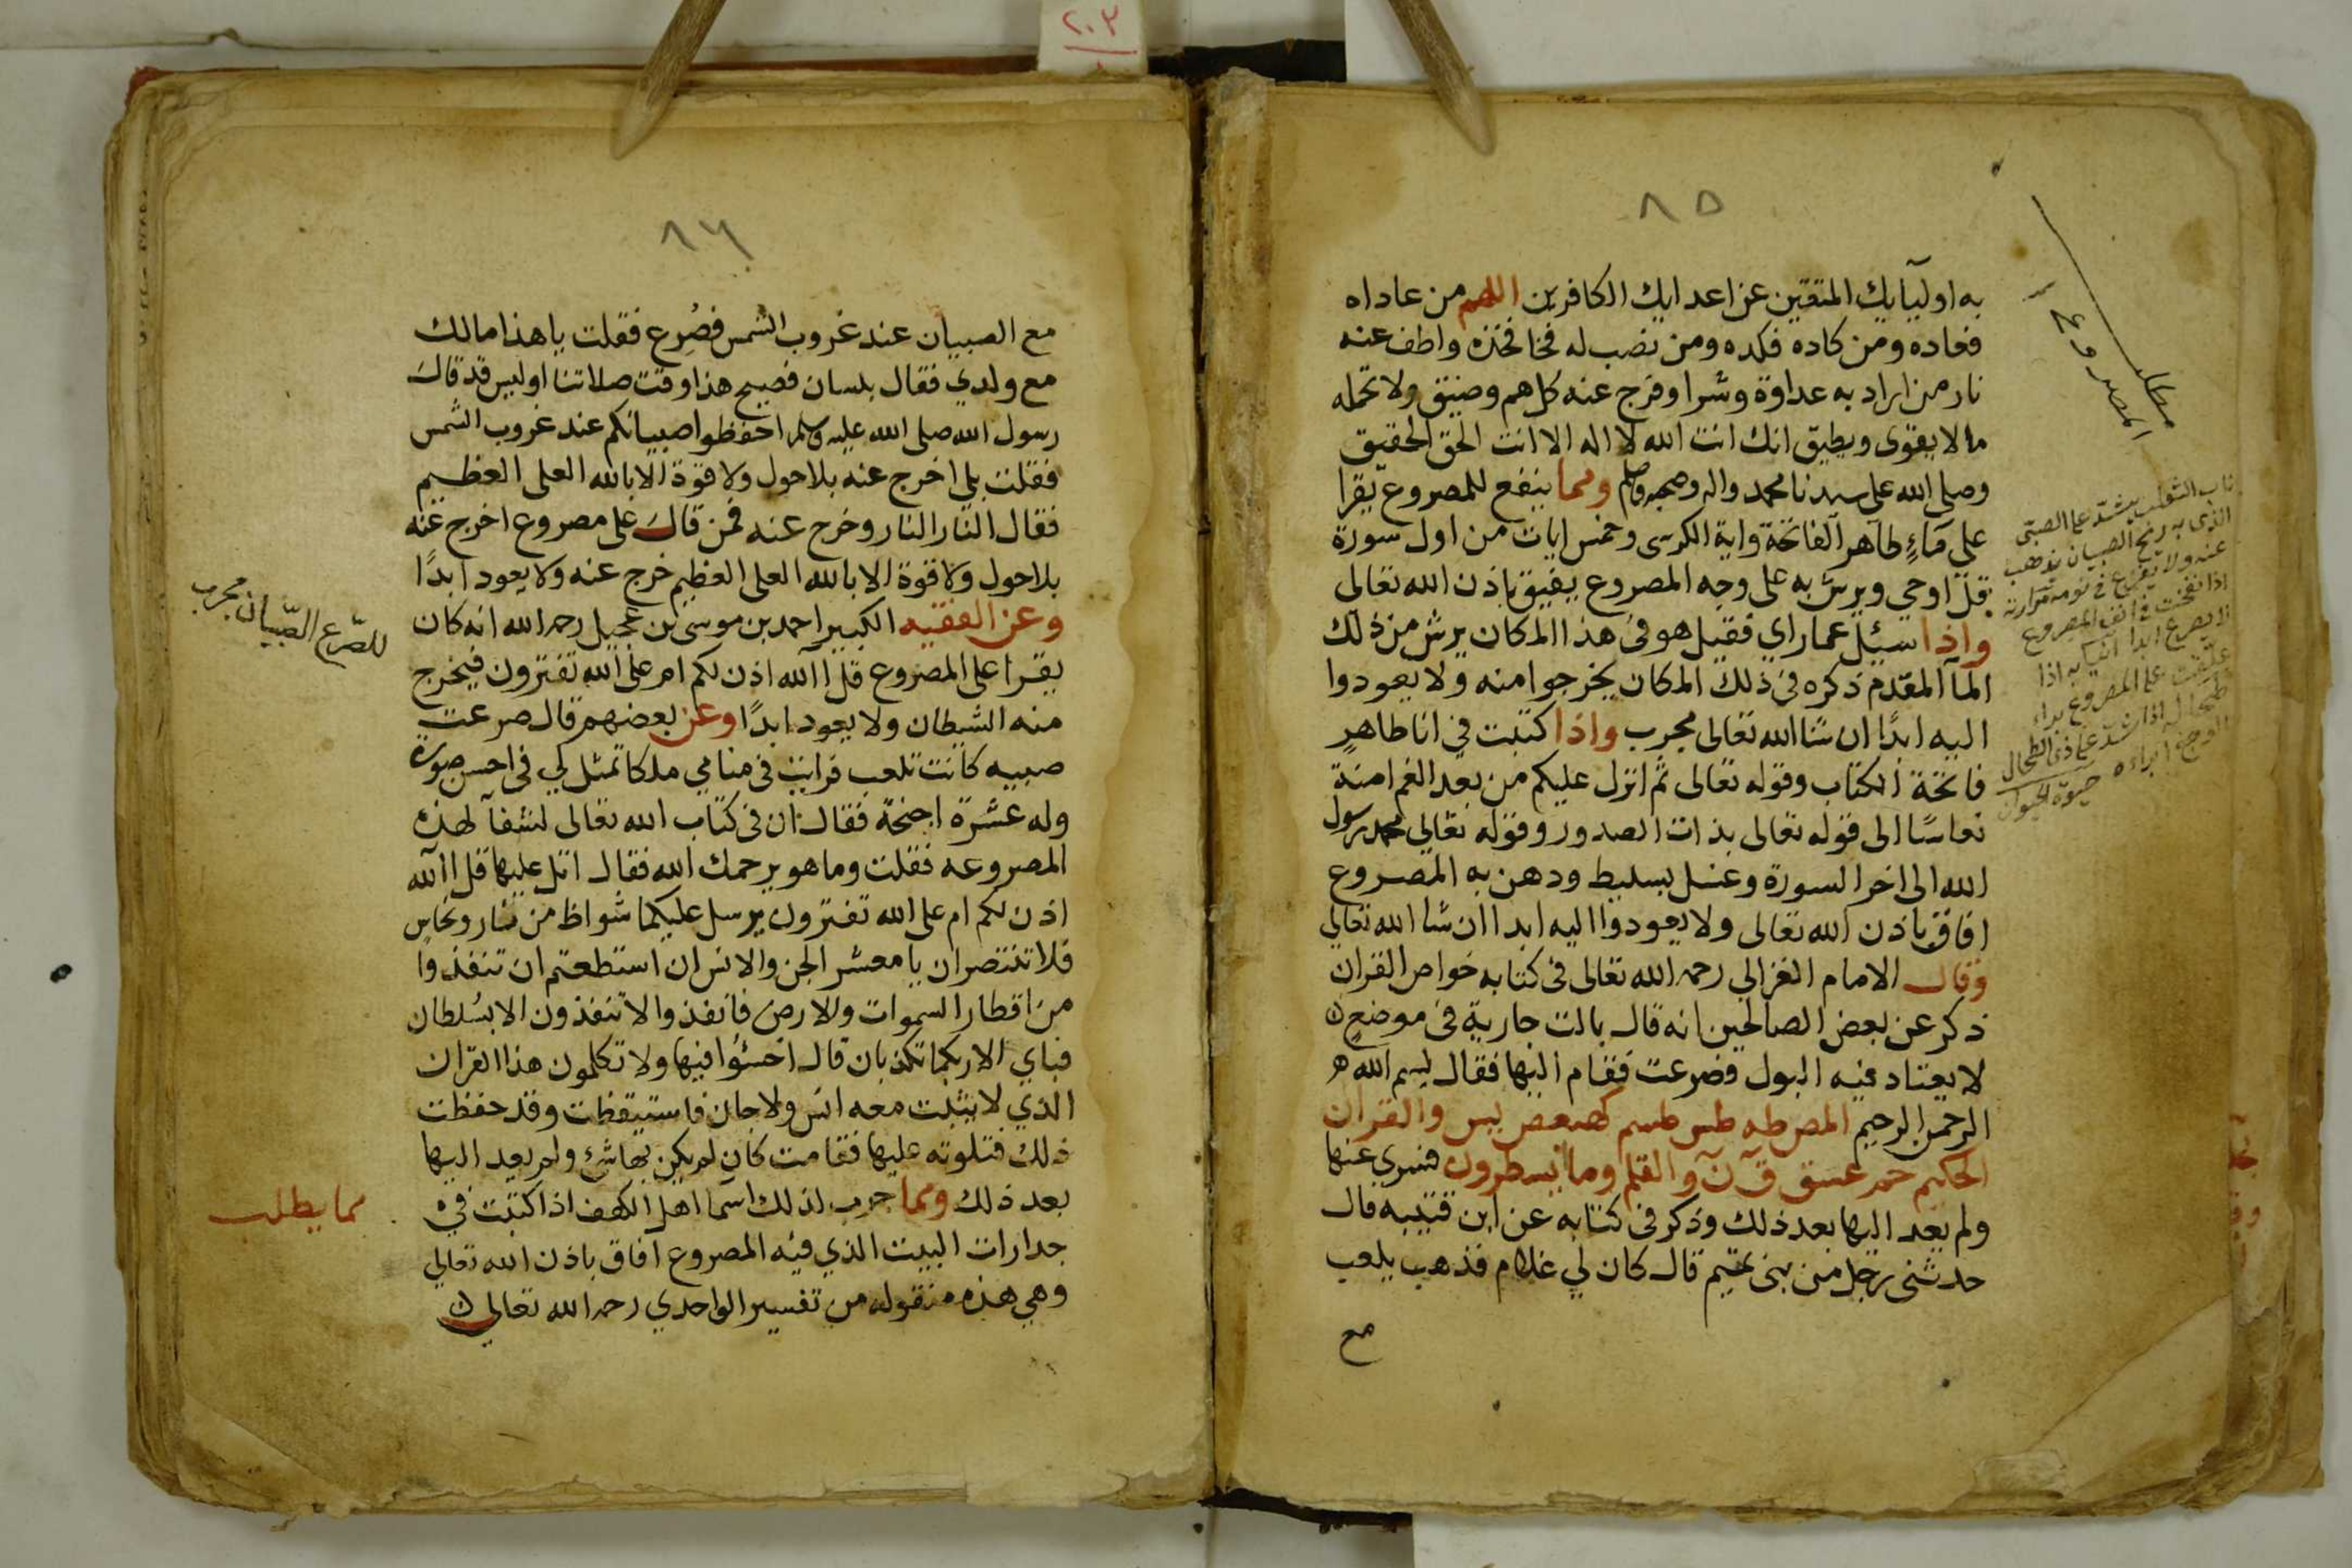 ٢٠٣
٨٥
به اوليآيك المتقين عن اعدايك الكافرين اللهم من عاداه
فعاده ومن كاده فكده ومن نصب له فخا فخذه واطف عنه
نار من اراد به عداوة وشرا وفرج عنه كل هم وضيق ولا تحمله
ما لا يقوى ويطيق انك انت الله لا اله الا انت الحق الحقيق
وصلى الله على سيدنا محمد واله وصحبه وسلم ومما ينفع للمصروع يقرا
على مآءٍ طاهر الفاتحة واية الكرسى وخمس ايات من اول سورة
قل اوحي ويرش به على وجه المصروع يفيق باذن الله تعالى
واذا سيئل عمار اي فقيل هو في هذا المكان يرش من ذلك
المآ المقدم ذكره فى ذلك المكان يخرجوا منه ولا يعودوا
اليه ابدًا ان شا الله تعالى مجرب واذا كتبت في انا طاهرٍ
فاتحة الكتاب وقوله تعالى ثم انزل عليكم من بعد الغم امنة
نعاسًا الى قوله تعالى بذات الصدور وقوله تعالي محمد رسول
الله الى اخر السورة وغسل بسليط ودهن به المصروع
افاق باذن الله تعالى ولا يعودوا اليه ابدا ان شا الله تعالي
وقال الامام الغزالي رحمه الله تعالى فى كتابه خواص القران
ذكر عن بعض الصالحين انه قال بالت جارية فى موضعٍ
لا يعتاد فيه البول فصرعت فقام اليها فقال بسم الله
الرحمن الرحيم المص طه طس طسم كهيعص يس والقران
الحكيم حمعسق ق ن والقلم وما يسطرون فسري عنها
ولم يعد اليها بعد ذلك وذكر فى كتابه عن ابن قتيبه قال
حدثنى رجل من بنى تميم قال كان لي غلام فذهب يلعب
مع
مطلب
المصروع
ناب الثعلب يشد على الصبى
الذى به ريح الصبيان يذهب
عنه ولا يفزع فى نومه
اذا نفخت فى انف المصروع
لا يصرع ابدا
علقت على المصروع
طحال اذا شد على ذى الطحال
الوجع ابراه حيوة الحيوان
٨٦
مع الصبيان عند غروب الشمس فصُرِع فقلت يا هذا مالك
مع ولدي فقال بلسان فصيح هذا وقت صلاتنا اوليس قد قال
رسول الله صلى الله عليه وسلم احفظوا صبيانكم عند غروب الشمس
فقلت بلى اخرج عنه بلا حول ولا قوة الا بالله العلى العظيم
فقال النار النار وخرج عنه فمن قال على مصروع اخرج عنه
بلا حول ولا قوة الا بالله العلى العظيم خرج عنه ولا يعود ابدًا
وعن الفقيه الكبير احمد بن موسى بن عجيل رحمه الله انه كان
يقرا على المصروع قل االله اذن لكم ام على الله تفترون فيخرج
منه الشيطان ولا يعود ابدًا وعن بعضهم قال صرعت
صبيه كانت تلعب فرايت فى منامي ملكا تمثل لي فى احسن صورة
وله عشرة اجنحة فقال ان فى كتاب الله تعالى لشفآ لهذه
المصروعه فقلت وما هو يرحمك الله فقال اتل عليها قل االله
اذن لكم ام على الله تفترون يرسل عليكما شواظ من نار ونحاس
فلا تنتصران يا معشر الجن والانس ان استطعتم ان تنفذوا
من اقطار السموات والارض فانفذوا لا تنفذون الا بسُلطان
فباي الا ربكما تكذبان قال اخسئوا فيها ولا تكلمون هذا القران
الذي لا يثبت معه انس ولا جان فاستيقظت وقد حفظت
ذلك فتلوته عليها فقامت كان لم يكن بها شئ ولم يعد اليها
بعد ذلك ومما جرب لذلك اسما اهل الكهف اذا كتبت في
جدارات البيت الذي فيه المصروع افاق باذن الله تعالي
وهي هذه منقوله من تفسير الواحدي رحمه الله تعالي
للصّرع الصّبيان مجرب
مما يطلب